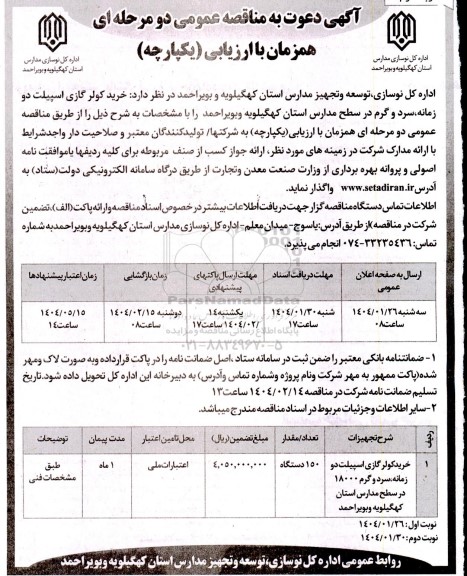 آگهی دعوت به مناقصه عمومی دو مرحله ای
همزمان با ارزیابی (یکپارچه)
اداره کل نوسازی مدارس
استان کهگیلویه وبویراحمد
اداره کل نوسازی مدارس
استان کهگیلویه وبویراحمد
اداره کل نوسازی،توسعه وتجهیز مدارس استان کهگیلویه و بویراحمد در نظر دارد: خرید کولر گازی اسپیلت دو
زمانه،سرد و گرم در سطح مدارس استان کهگیلویه وبویراحمد را با مشخصات به شرح ذیل را از طریق مناقصه
عمومی دو مرحله ای همزمان با ارزیابی(یکپارچه) به شرکتها/ تولیدکنندگان معتبر و صلاحیت دار واجدشرایط
با ارائه مدارک شرکت در زمینه های مورد نظر، ارائه جواز کسب از صنف مربوطه برای کلیه ردیفها یاموافقت نامه
اصولی و پروانه بهره برداری از وزارت صنعت معدن وتجارت از طریق درگاه سامانه الکترونیکی دولت(ستاد) به
آدرس www.setadiran.ir واگذار نماید.
اطلاعات تماس دستگاه مناقصه گزار جهت دریافت اطلاعات بیشتر در خصوص اسناد مناقصه وارائه پاکت (الف)،تضمین
شرکت در مناقصه)از طریق آدرس:یاسوج- میدان معلم- اداره کل نوسازی مدارس استان کهگیلویه وبویراحمد به شماره
تماس: ۳۳۲۳۵۴۳۶-۰۷۴ انجام می پذیرد.
ارسال به صفحه اعلان عمومی | مهلت دریافت اسناد | مهلت ارسال پاکتهای پیشنهادی | زمان بازگشایی | زمان اعتبار پیشنهادها
سه شنبه ۱۴۰۴/۰۱/۲۶ ساعت۰۸ | شنبه ۱۴۰۴/۰۱/۳۰ ساعت۱۷ | یکشنبه۱۴ /۱۴۰۴/۰۲ ساعت۱۷ | دوشنبه ۱۴۰۴/۰۲/۱۵ ساعت۰۸ | ۱۴۰۴/۰۵/۱۵ ساعت۱۴
ParsNamadData
پایگاه اطلاع رسانی مناقصه و مزایده
۰۲۱-۸۸۳۴۹۶۷۰-۵
۱- ضمانتنامه بانکی معتبر را ضمن ثبت در سامانه ستاد ،اصل ضمانت نامه را در پاکت قرارداده وبه صورت لاک ومهر
شده(پاکت ممهور به مهر شرکت ونام پروژه وشماره تماس وآدرس) به دبیرخانه این اداره کل تحویل داده شود.تاریخ
تسلیم ضمانت نامه شرکت در مناقصه ۱۴۰۴/۰۲/۱۴ ساعت۱۳
۲-سایر اطلاعات وجزئیات مربوط در اسناد مناقصه مندرج میباشد.
ردیف | شرح تجهیزات | تعداد/مقدار | مبلغ تضمین(ریال) | محل تامین اعتبار | مدت پیمان | توضیحات
۱ | خریدکولر گازی اسپیلت دو | ۱۵۰ دستگاه | ۴,۰۵۰,۰۰۰,۰۰۰ | اعتبارات ملی | ۱ ماه | طبق
زمانه،سرد و گرم ۱۸۰۰۰ | مشخصات فنی
در سطح مدارس استان
کهگیلویه وبویراحمد
نوبت اول: ۱۴۰۴/۰۱/۲۶
نوبت دوم: ۱۴۰۴/۰۱/۳۰
روابط عمومی اداره کل نوسازی،توسعه وتجهیز مدارس استان کهگیلویه وبویراحمد